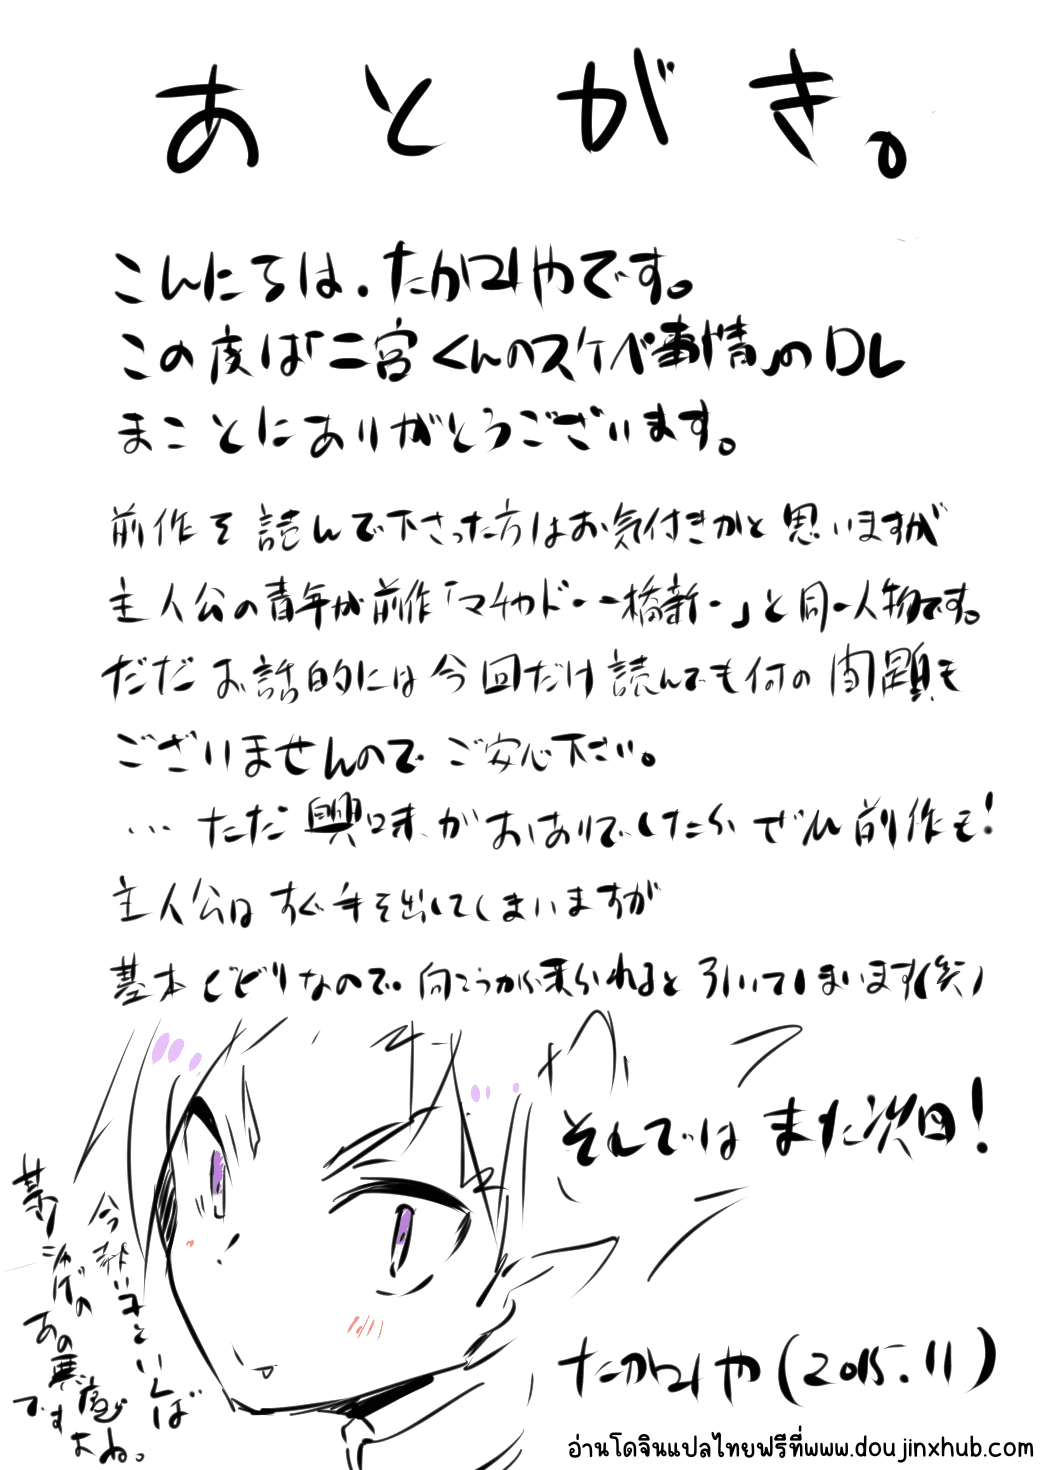 あとがき。
こんにちは、たかみやです。
この度は「二宮くんのスケベ事情」のDL
まことにありがとうございます。
前作を読んで下さった方はお気付きかと思いますが
主人公の青年が前作「マチカド-一橋新一」と同一人物です。
ただお話的には今回だけ読んでも何の問題も
ございませんのでご安心下さい。
…ただ興味がおありでしたらぜひ前作も!
主人公はすぐ手を出してしまいますが
基本ビビりなので向こうから来られると引いてしまいます(笑)
それではまた次回!
今熱い子といえば
某ジャンルの
あの悪魔
ですよね。
たかみや(2015.11)
อ่านโดจินแปลไทยฟรีที่www.doujinxhub.com